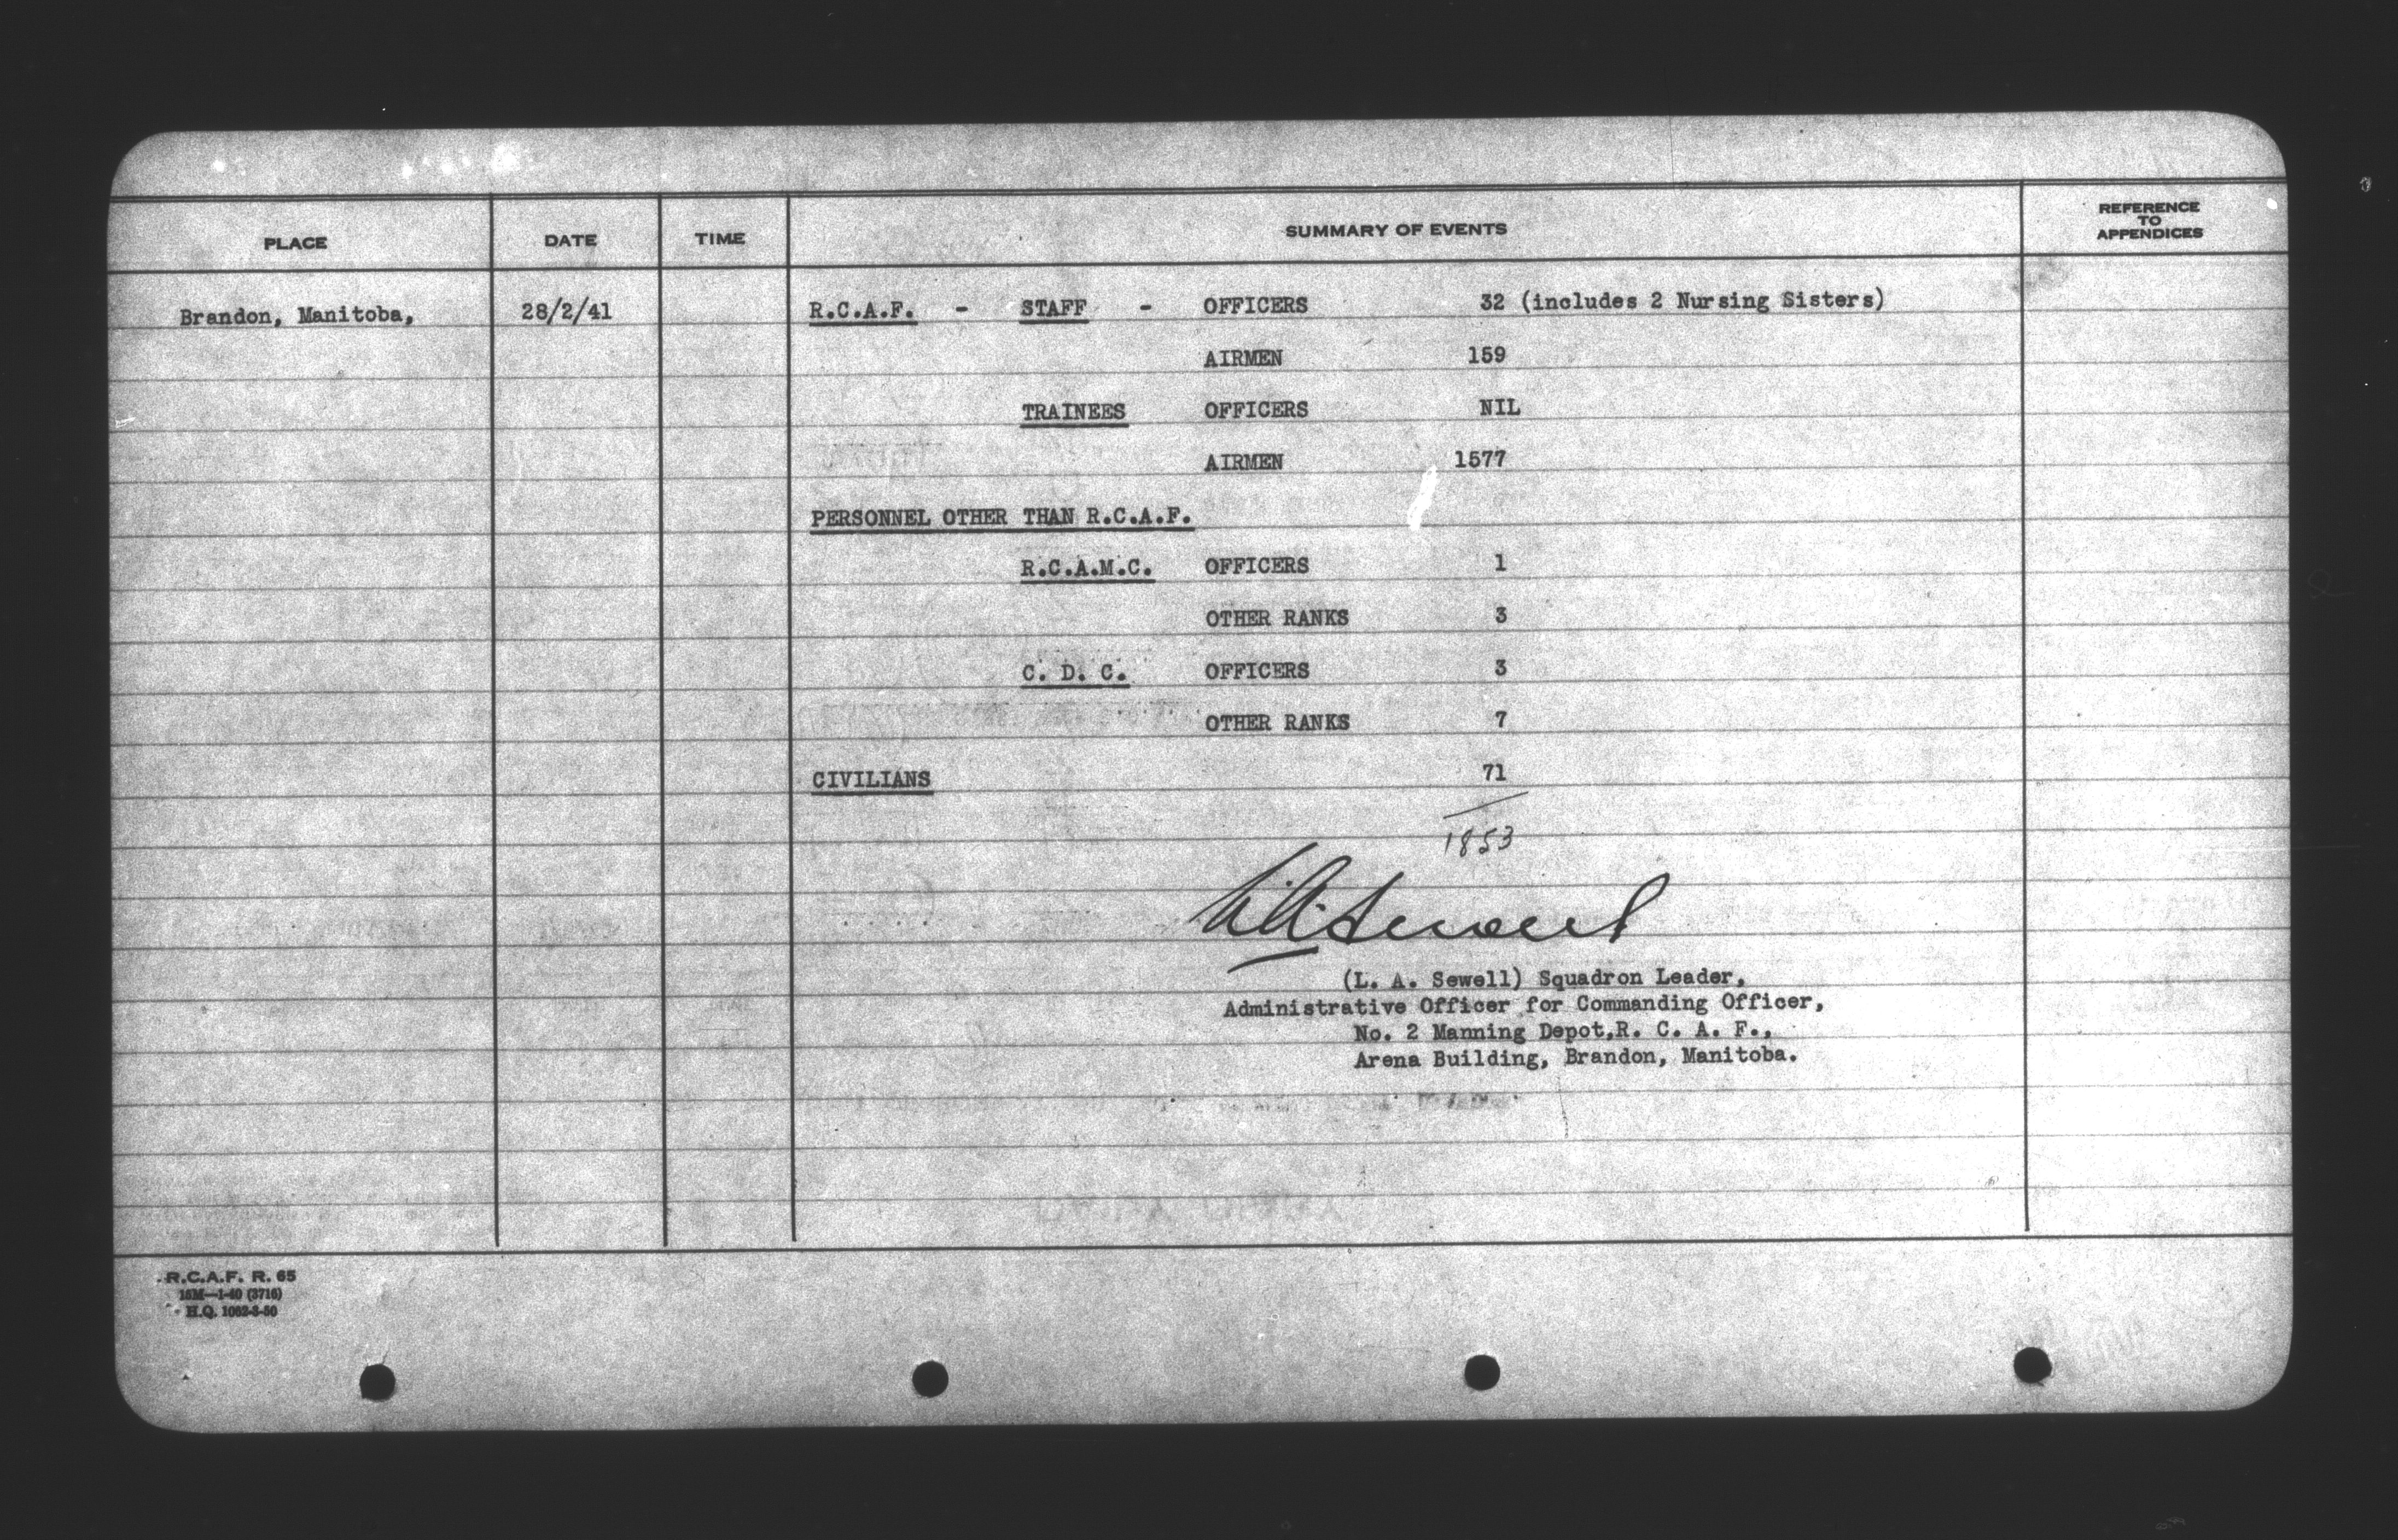 PLACE DATE TIME SUMMARY OF EVENTS REFERENCE TO APPENDICES
Brandon, Manitoba, 28/2/41 R.C.A.F. - STAFF - OFFICERS 32 (includes 2 Nursing Sisters)
AIRMEN 159
TRAINEES OFFICERS NIL
AIRMEN 1577
PERSONNEL OTHER THAN R.C.A.F.
R.C.A.M.C. OFFICERS 1
OTHER RANKS 3
C. D. C. OFFICERS 3
OTHER RANKS 7
CIVILIANS 71
1853
L.A. Sewell
(L. A. Sewell) Squadron Leader,
Administrative Officer for Commanding Officer,
No. 2 Manning Depot,R. C. A. F.,
Arena Building, Brandon, Manitoba.
R.C.A.F. R. 65
15M—1-40 (3716)
H.Q. 1062-3-50